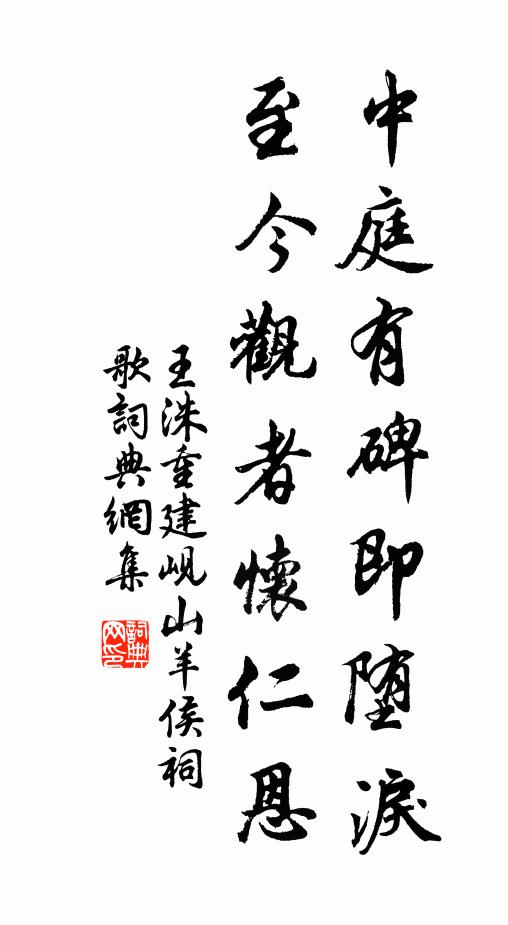 中庭有碑即堕淚
至今觀者懷仁恩
王洙重建峴山羊侯祠
歌詞典網集
詞典網印